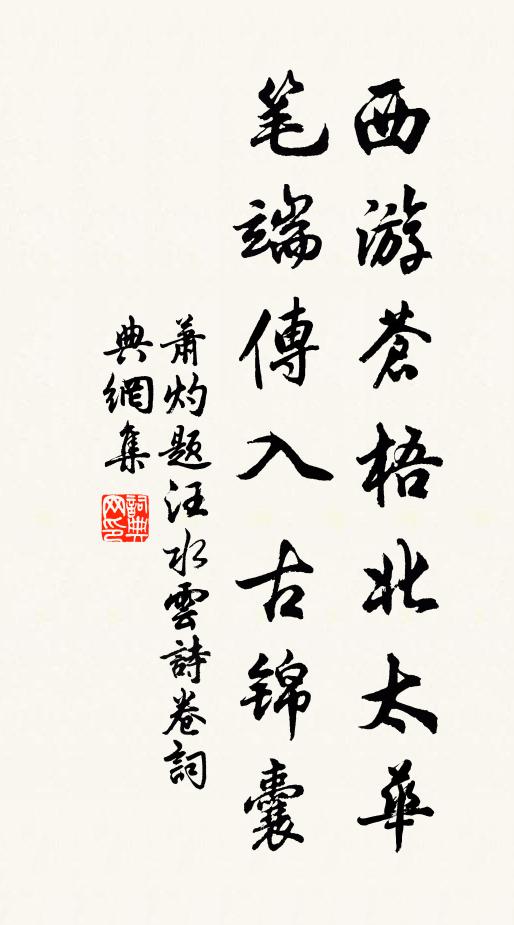 西游蒼梧北太華
笔端傳入古锦囊
萧灼题汪水雲詩卷詞
典網集
詞典
网印